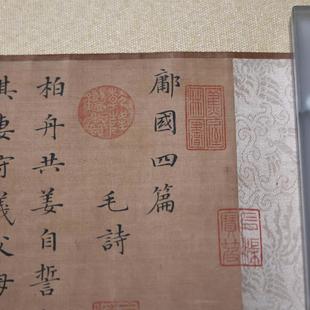 鄘國四篇
毛詩
柏舟共姜自誓
其妻守義父母